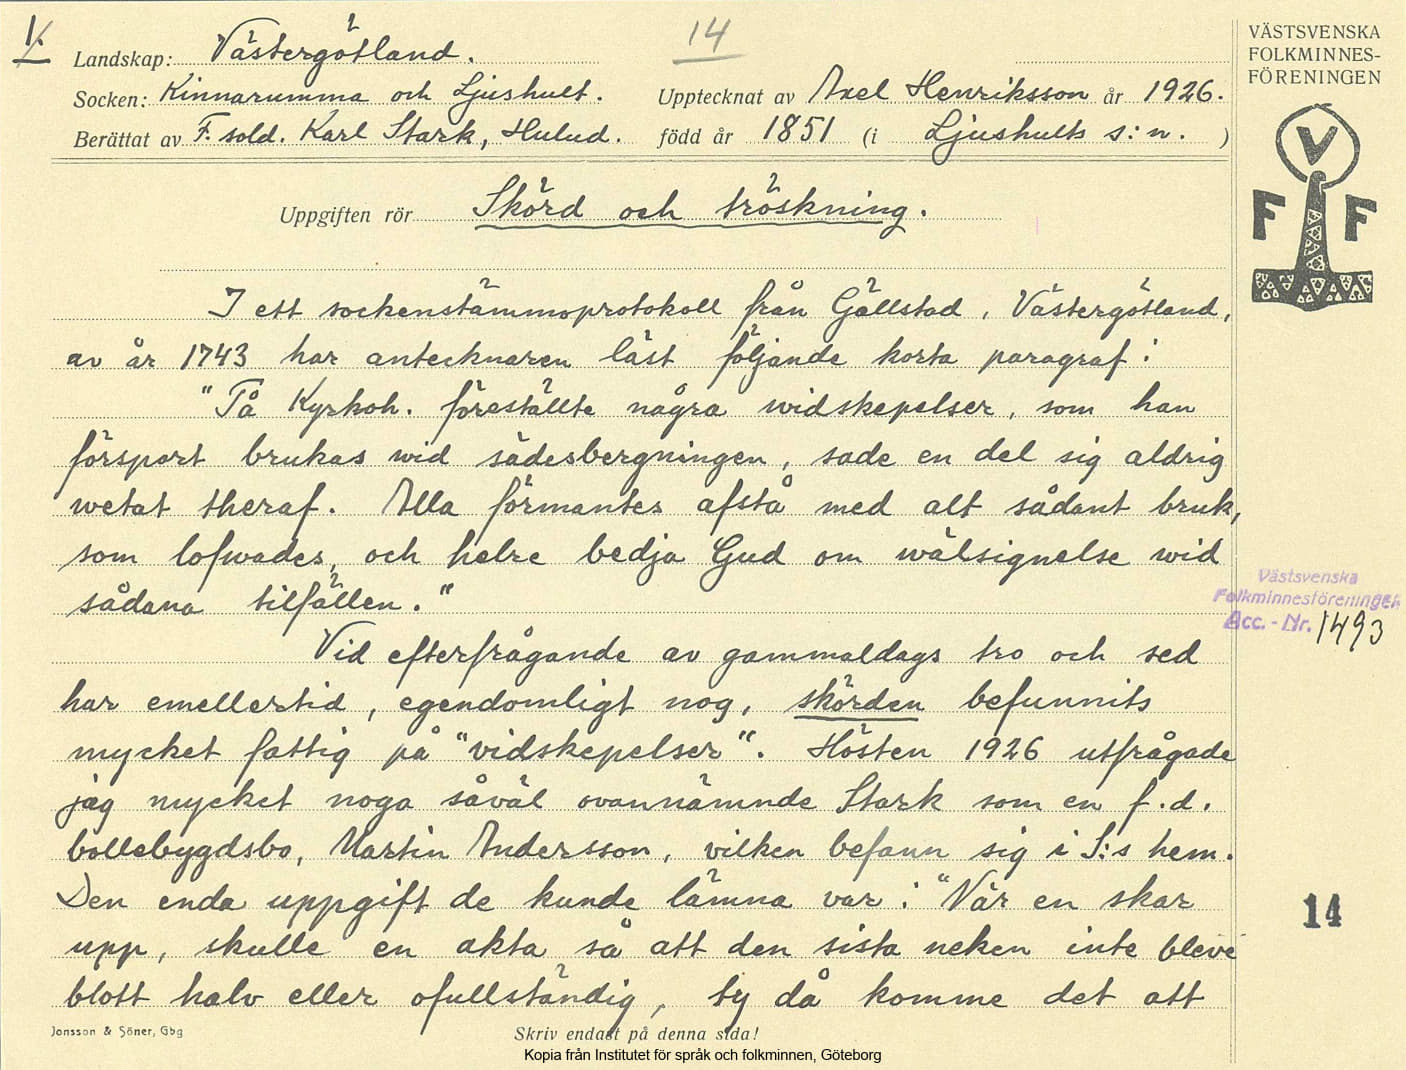 V
14
VÄSTSVENSKA
FOLKMINNES-
FÖRENINGEN
Landskap: Västergötland.
Socken: Kinnarumma och Ljushult. Upptecknat av Axel Henriksson år 1926.
Berättat av F. sold. Karl Stark, Hulud. född år 1851 (i Ljushults s:n. )
V
F F
Uppgiften rör Skörd och tröskning.
I ett sockenstämmoprotokoll från Gällstad, Västergötland,
av år 1743 har antecknaren läst följande korta paragraf:
"Tå Kyrkoh. föreställte några widskepelser, som han
försport brukas wid sädesbergningen, sade en del sig aldrig
wetat theraf. Alla förmantes afstå med alt sådant bruk,
som lofwades, och helre bedja Gud om wälsignelse wid
sådana tilfällen."
Västsvenska
Folkminnesföreningen
Acc.-Nr. 1493
Vid efterfrågande av gammaldags tro och sed
har emellertid, egendomligt nog, skörden befunnits
mycket fattig på "vidskepelser". Hösten 1926 utfrågade
jag mycket noga såväl ovannämnde Stark som en f.d.
bollebygdsbo, Martin Andersson, vilken befann sig i S:s hem.
Den enda uppgift de kunde lämna var: "När en skar
upp, skulle en akta så att den sista neken inte bleve
blott halv eller ofullständig, ty då komme det att
14
Jonsson & Söner, Gbg
Skriv endast på denna sida!
Kopia från Institutet för språk och folkminnen, Göteborg